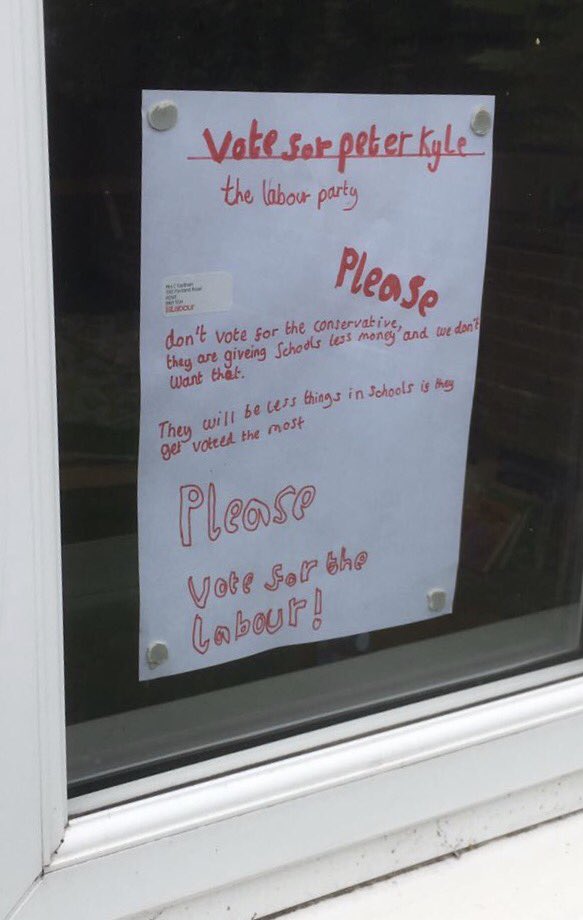 Vote for peter Kyle
the labour party
Please
Labour
don't vote for the conservative,
they are giveing schools less money and we don't
want that.
They will be less things in schools is they
get voteed the most
Please
Vote for the
labour!